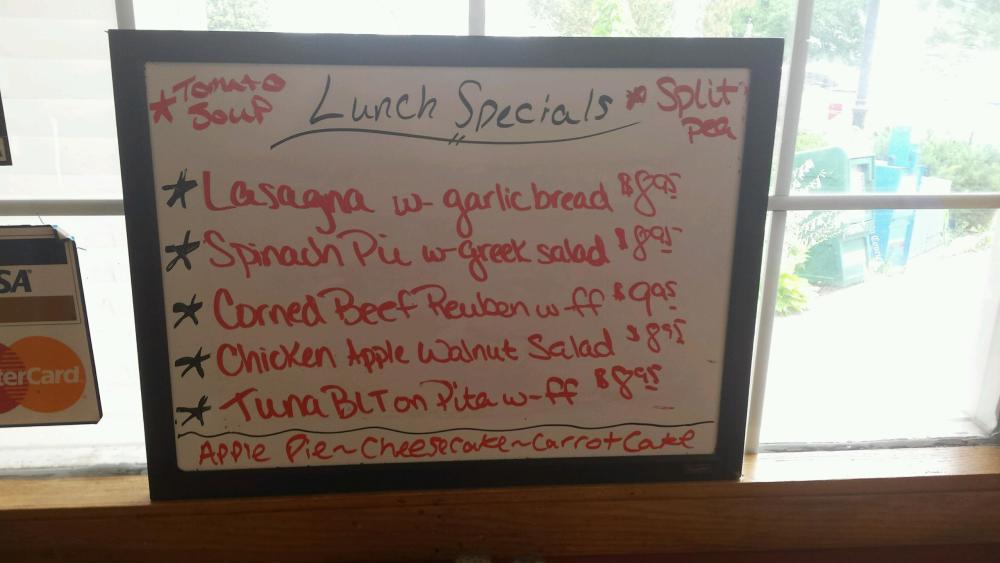 ★ Tomato
Soup
Lunch Specials
★ Split
pea
★ Lasagna w- garlic bread $8.95
★ Spinach Pie w- Greek salad $8.95
★ Corned Beef Reuben w- ff $9.95
★ Chicken Apple Walnut Salad $8.95
★ Tuna BLT on Pita w- ff $8.95
Apple Pie~Cheesecake~Carrot Cake
SA
terCard